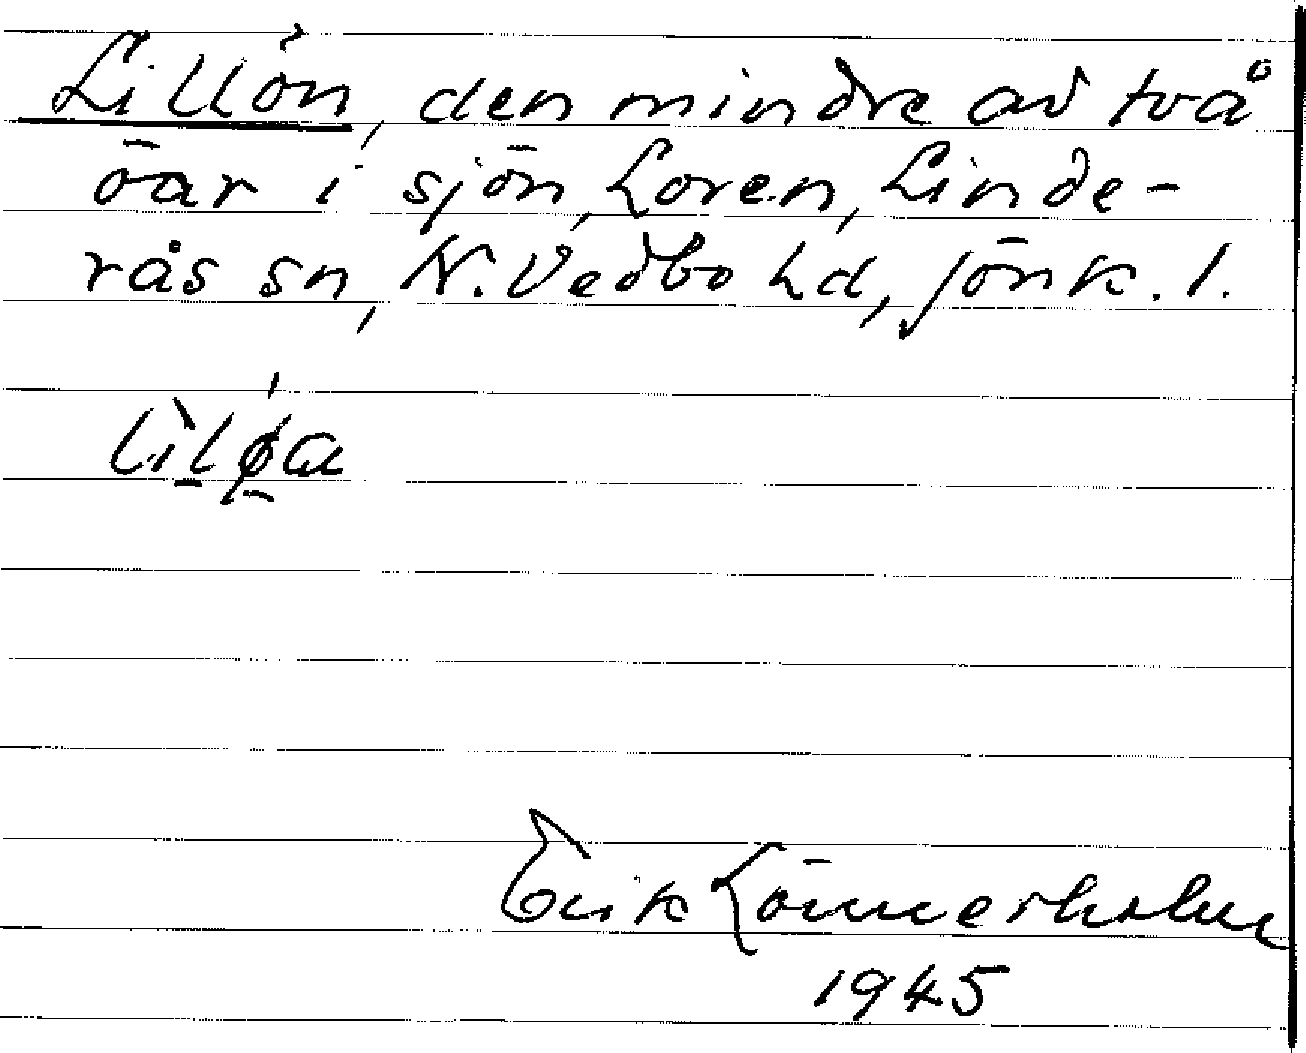 Lillön, den mindre av två
öar i sjön Loren, Linde-
rås sn, N. Vedbo hd, Jönk. l.
lìl̠ǿ̠a
Erik Lönnerholm
1945